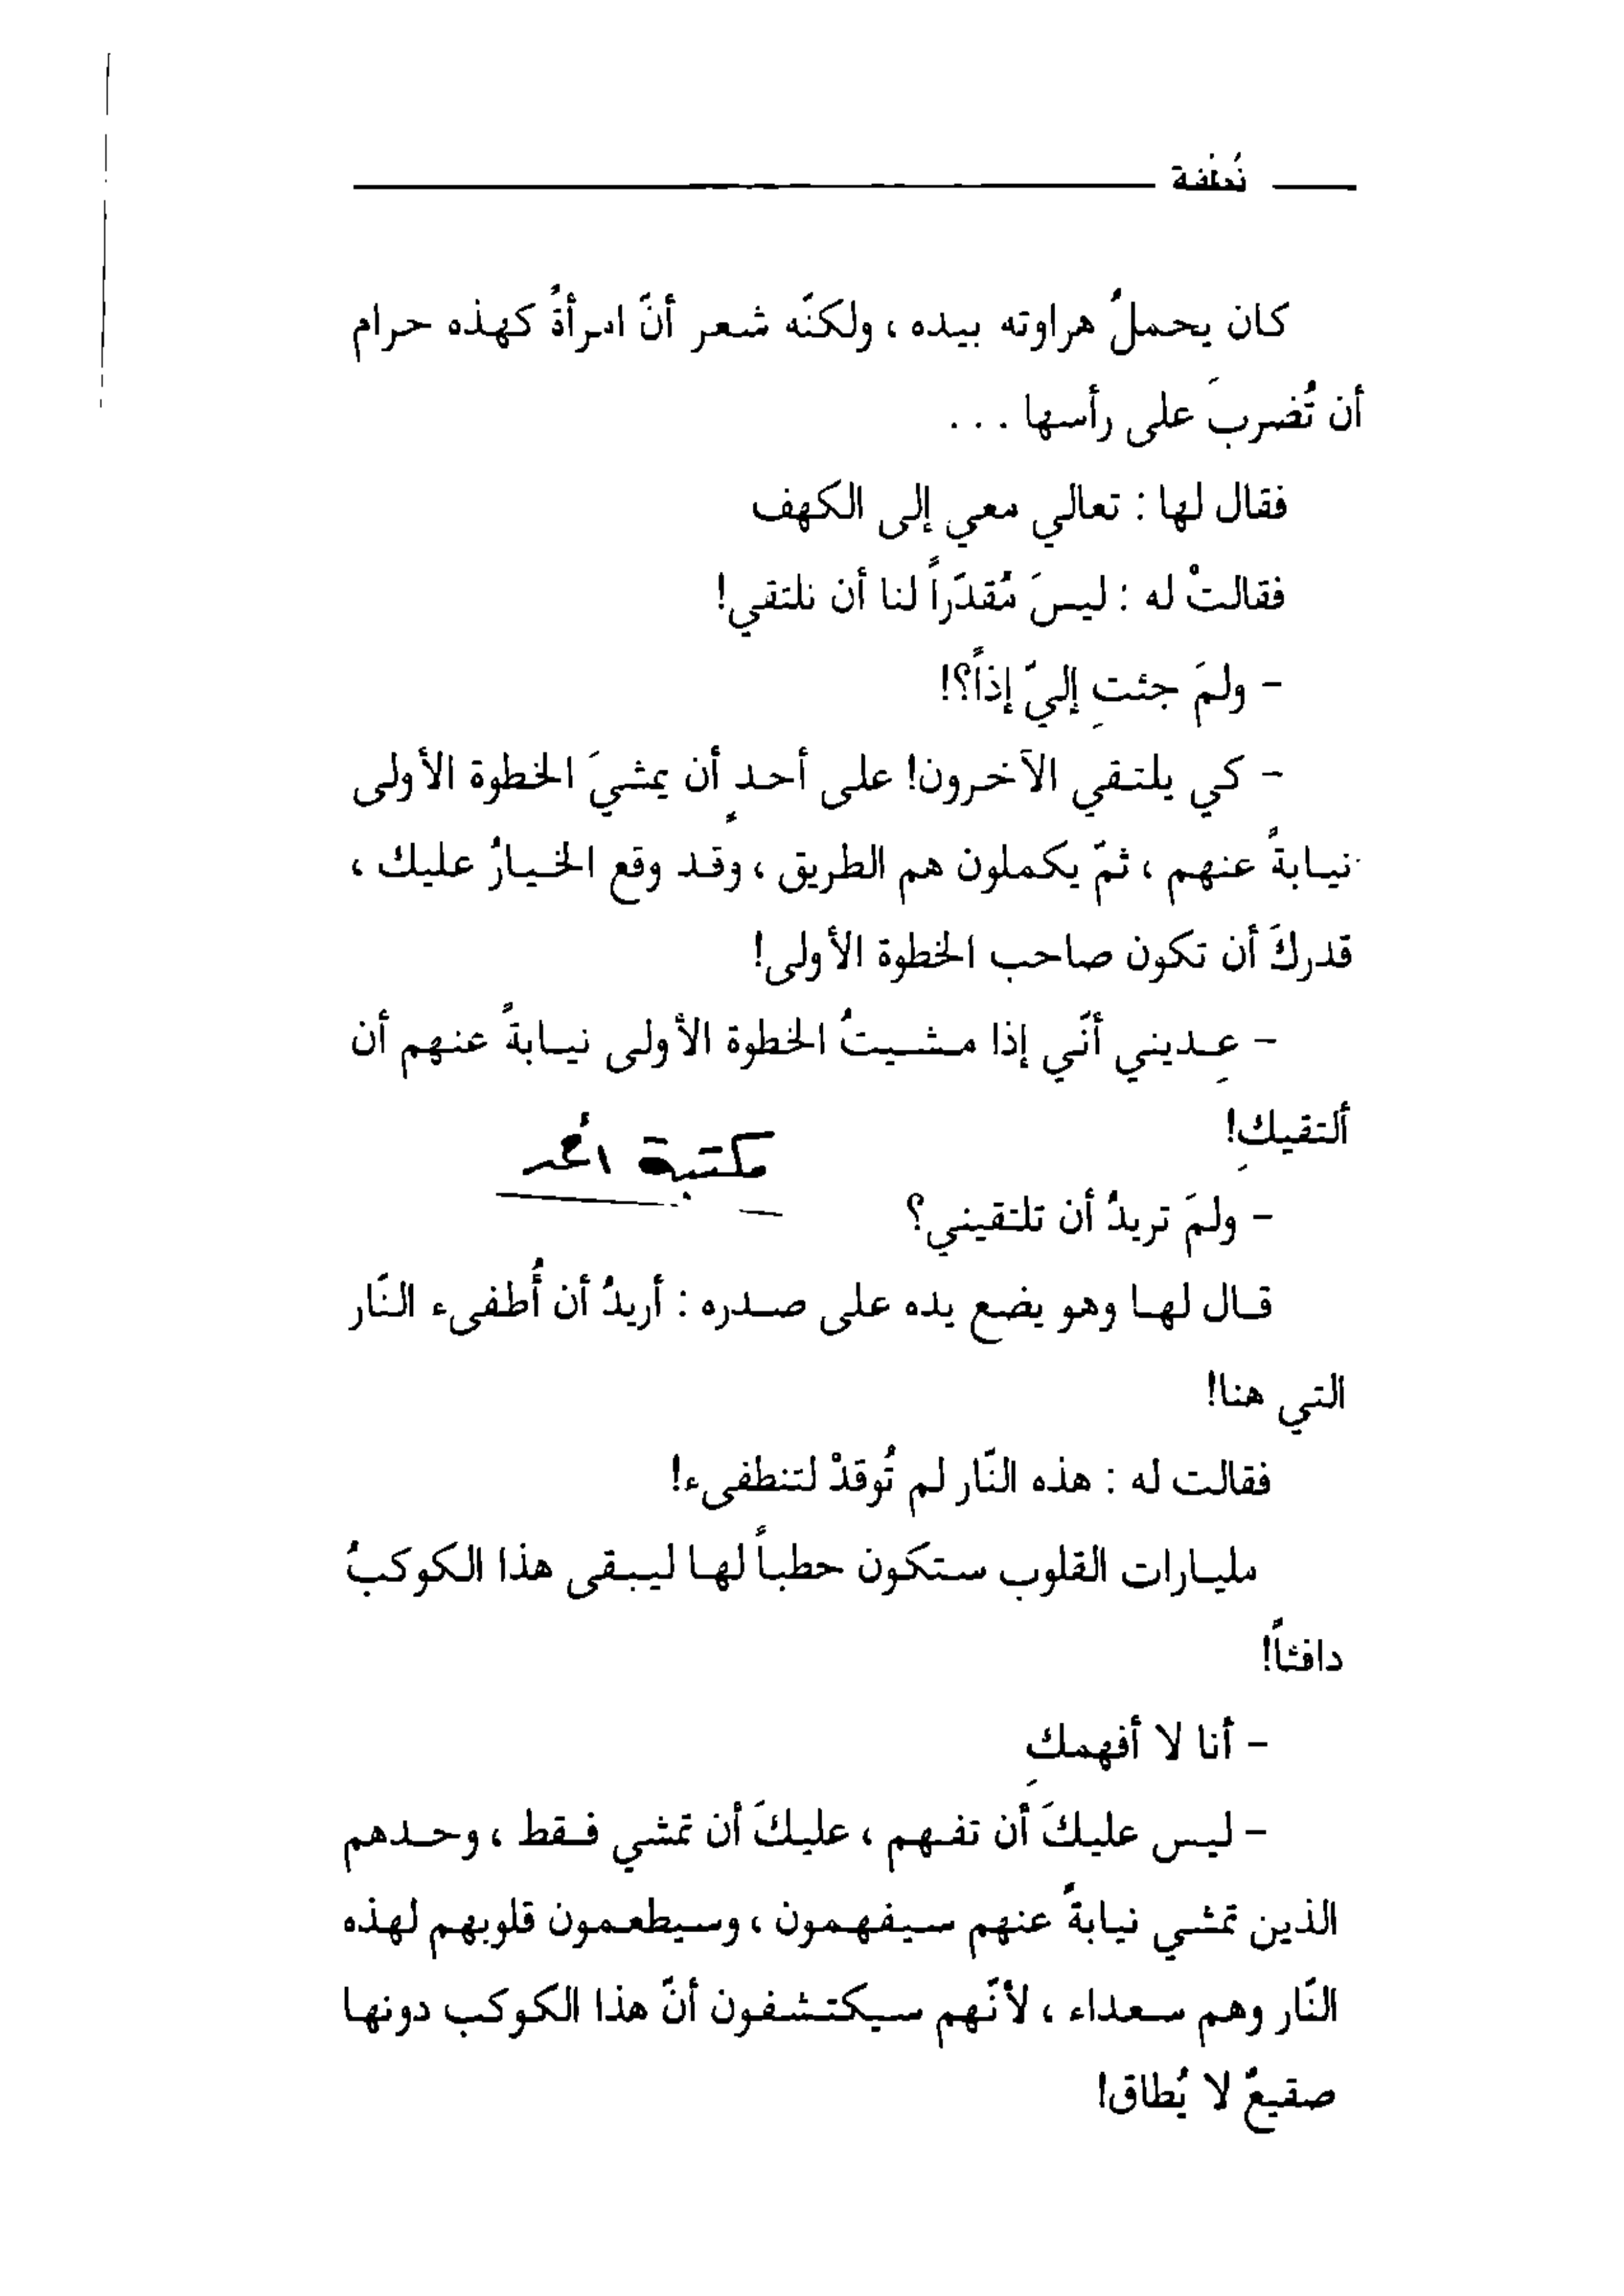 نُطفة
كان يحملُ هراوته بيده ، ولكنّه شعر أنّ امرأةً كهذه حرام
أن تُضربَ على رأسها . . .
فقال لها : تعالي معي إلى الكهف
فقالتْ له : ليسَ مُقدّراً لنا أن نلتقي!
- ولمَ جئتِ إليّ إذاً؟!
- كي يلتقي الآخرون! على أحدٍ أن يمشيَ الخطوة الأولى
نيابةً عنهم ، ثمّ يكملون هم الطريق ، وقد وقع الخيارُ عليك ،
قدركَ أن تكون صاحب الخطوة الأولى!
- عِديني أنّي إذا مشيتُ الخطوة الأولى نيابةً عنهم أن
ألتقيكِ!
مكتبة
- ولمَ تريدُ أن تلتقيني؟
قال لها وهو يضع يده على صدره : أريدُ أن أُطفىء النّار
التي هنا!
فقالت له : هذه النّار لم تُوقدْ لتنطفىء!
مليارات القلوب ستكون حطباً لها ليبقى هذا الكوكبُ
دافئاً!
- أنا لا أفهمكِ
- ليس عليكَ أن تفهم ، عليكَ أن تمشي فقط ، وحدهم
الذين تمشي نيابةً عنهم سيفهمون ، وسيطعمون قلوبهم لهذه
النّار وهم سعداء ، لأنّهم سيكتشفون أنّ هذا الكوكب دونها
صقيعٌ لا يُطاق!